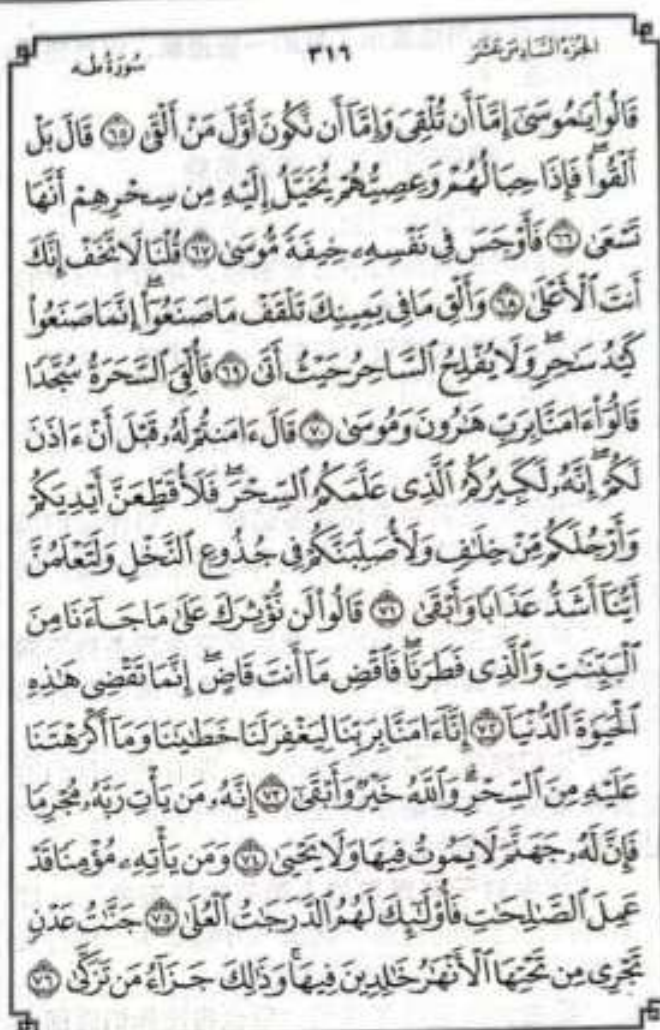 الجزء السادس عشر ٣١٦ سورة طه
قَالُوا۟ يَـٰمُوسَىٰٓ إِمَّآ أَن تُلْقِىَ وَإِمَّآ أَن نَّكُونَ أَوَّلَ مَنْ أَلْقَىٰ ٦٥ قَالَ بَلْ
أَلْقُوا۟ ۖ فَإِذَا حِبَالُهُمْ وَعِصِيُّهُمْ يُخَيَّلُ إِلَيْهِ مِن سِحْرِهِمْ أَنَّهَا
تَسْعَىٰ ٦٦ فَأَوْجَسَ فِى نَفْسِهِۦ خِيفَةً مُّوسَىٰ ٦٧ قُلْنَا لَا تَخَفْ إِنَّكَ
أَنتَ ٱلْأَعْلَىٰ ٦٨ وَأَلْقِ مَا فِى يَمِينِكَ تَلْقَفْ مَا صَنَعُوٓا۟ ۖ إِنَّمَا صَنَعُوا۟
كَيْدُ سَـٰحِرٍ ۖ وَلَا يُفْلِحُ ٱلسَّاحِرُ حَيْثُ أَتَىٰ ٦٩ فَأُلْقِىَ ٱلسَّحَرَةُ سُجَّدًا
قَالُوٓا۟ ءَامَنَّا بِرَبِّ هَـٰرُونَ وَمُوسَىٰ ٧٠ قَالَ ءَامَنتُمْ لَهُۥ قَبْلَ أَنْ ءَاذَنَ
لَكُمْ ۖ إِنَّهُۥ لَكَبِيرُكُمُ ٱلَّذِى عَلَّمَكُمُ ٱلسِّحْرَ ۖ فَلَأُقَطِّعَنَّ أَيْدِيَكُمْ
وَأَرْجُلَكُم مِّنْ خِلَـٰفٍ وَلَأُصَلِّبَنَّكُمْ فِى جُذُوعِ ٱلنَّخْلِ وَلَتَعْلَمُنَّ
أَيُّنَآ أَشَدُّ عَذَابًا وَأَبْقَىٰ ٧١ قَالُوا۟ لَن نُّؤْثِرَكَ عَلَىٰ مَا جَآءَنَا مِنَ
ٱلْبَيِّنَـٰتِ وَٱلَّذِى فَطَرَنَا ۖ فَٱقْضِ مَآ أَنتَ قَاضٍ ۖ إِنَّمَا تَقْضِى هَـٰذِهِ
ٱلْحَيَوٰةَ ٱلدُّنْيَآ ٧٢ إِنَّآ ءَامَنَّا بِرَبِّنَا لِيَغْفِرَ لَنَا خَطَـٰيَـٰنَا وَمَآ أَكْرَهْتَنَا
عَلَيْهِ مِنَ ٱلسِّحْرِ ۗ وَٱللَّهُ خَيْرٌ وَأَبْقَىٰٓ ٧٣ إِنَّهُۥ مَن يَأْتِ رَبَّهُۥ مُجْرِمًا
فَإِنَّ لَهُۥ جَهَنَّمَ لَا يَمُوتُ فِيهَا وَلَا يَحْيَىٰ ٧٤ وَمَن يَأْتِهِۦ مُؤْمِنًا قَدْ
عَمِلَ ٱلصَّـٰلِحَـٰتِ فَأُو۟لَـٰٓئِكَ لَهُمُ ٱلدَّرَجَـٰتُ ٱلْعُلَىٰ ٧٥ جَنَّـٰتُ عَدْنٍ
تَجْرِى مِن تَحْتِهَا ٱلْأَنْهَـٰرُ خَـٰلِدِينَ فِيهَا ۚ وَذَٰلِكَ جَزَآءُ مَن تَزَكَّىٰ ٧٦